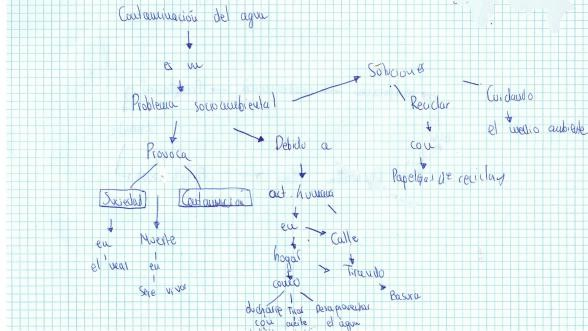 Contaminación del agua
es un
Problema socioambiental
Soluciones
Reciclar
con
Papeleras de reciclaj
Cuidando
el medio ambiente
Provoca
Suciedad
Contaminación
en
el
Muerte
en
Debido a
act. humana
en
hogar
como
Calle
Tirando
Basura
Tirar
aceite
Desaprovechar
el agua
con